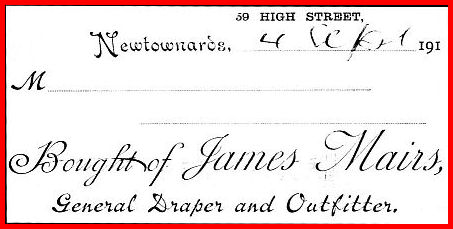 59 HIGH STREET,
Newtownards, 4 191
M
Bought of James Mairs,
General Draper and Outfitter.